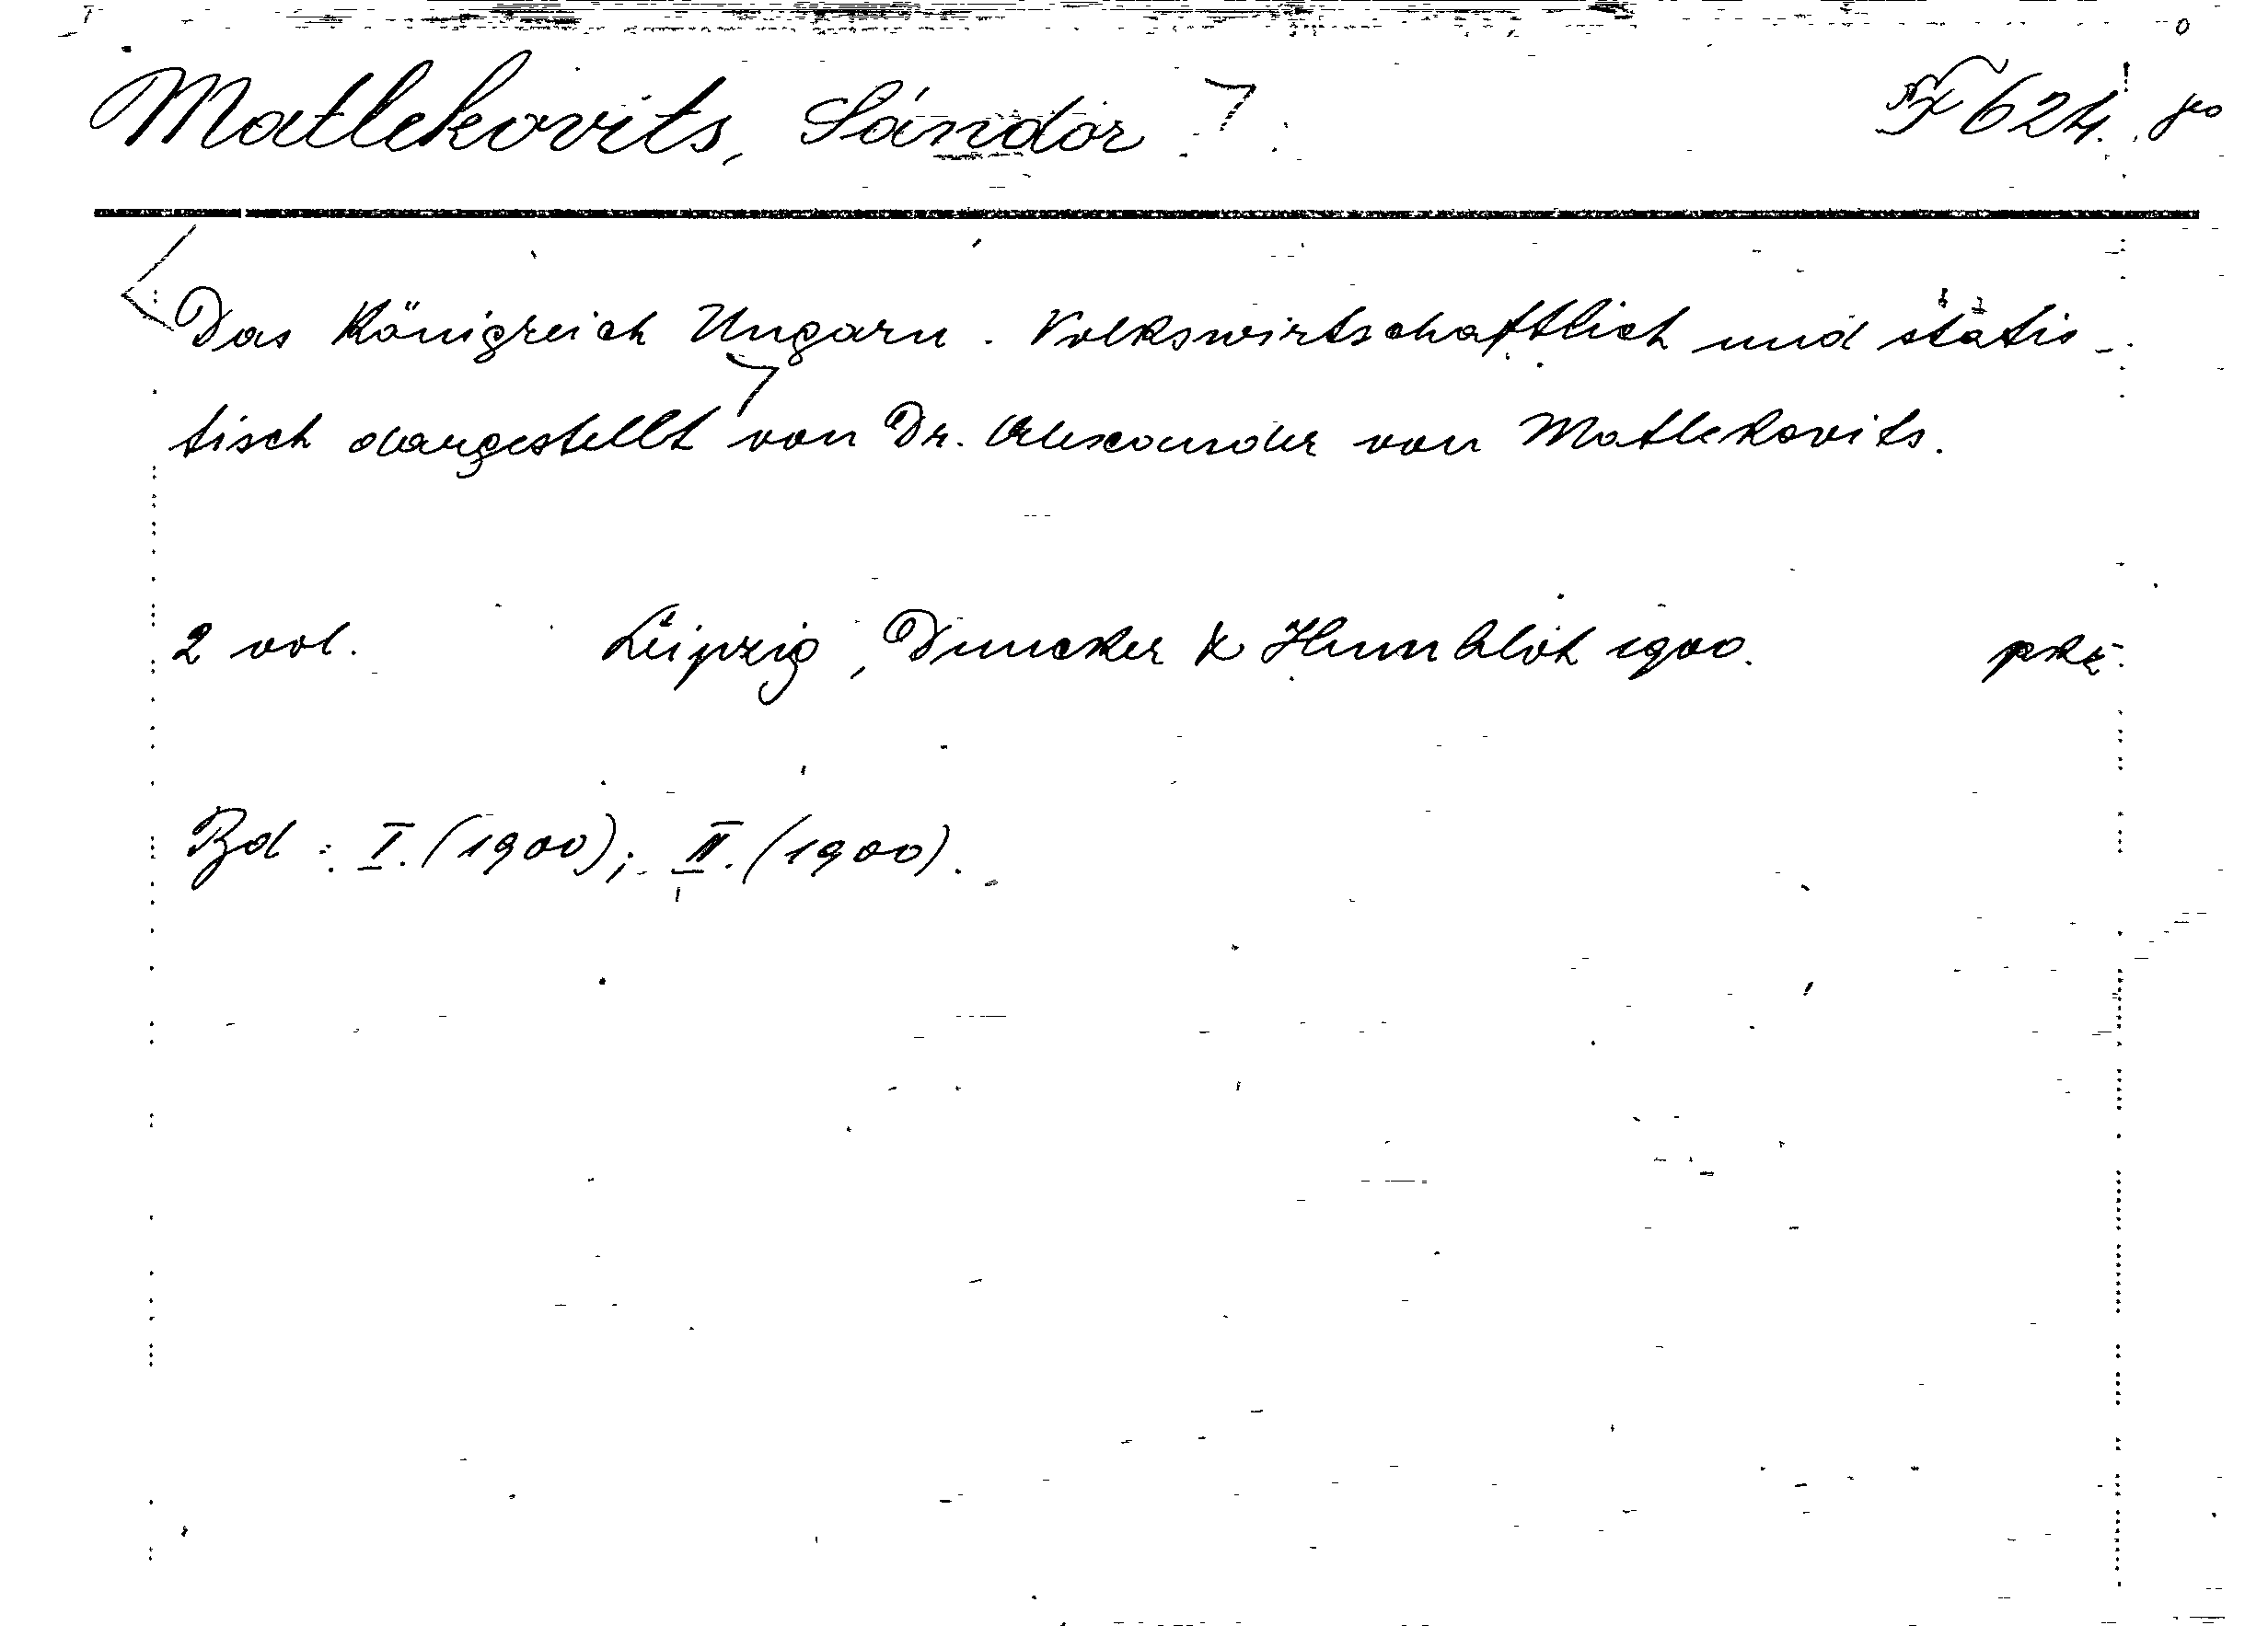 Matlekovits, Sándor 624.
Das Königreich Ungarn. Volkswirtschaftlich und statis-
tisch dargestellt von Dr. Alexander von Matlekovits.
2 vol. Leipzig, Duncker & Humblot 1900.
Bd: I. (1900); II. (1900).